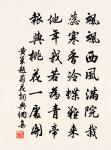 颯颯西風滿院栽
蕊寒香冷蝶難來
他年我若為青帝
報與桃花一處開
黃巢題菊花